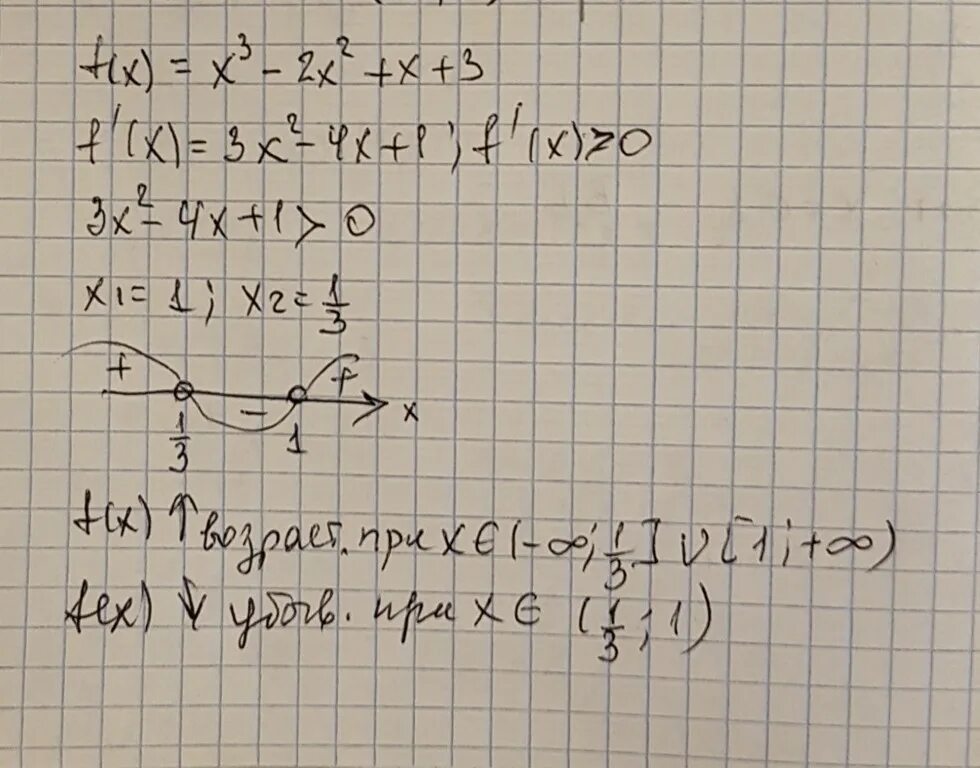 f(x) = x³ - 2x² + x + 3
f'(x) = 3x² - 4x + 1; f'(x) > 0
3x² - 4x + 1 > 0
x₁ = 1; x₂ = 1/3
+ - + x
1/3 1
f(x) ↑ возраст. при x ∈ (-∞; 1/3] ∪ [1; +∞)
f(x) ↓ убыв. при x ∈ (1/3; 1)